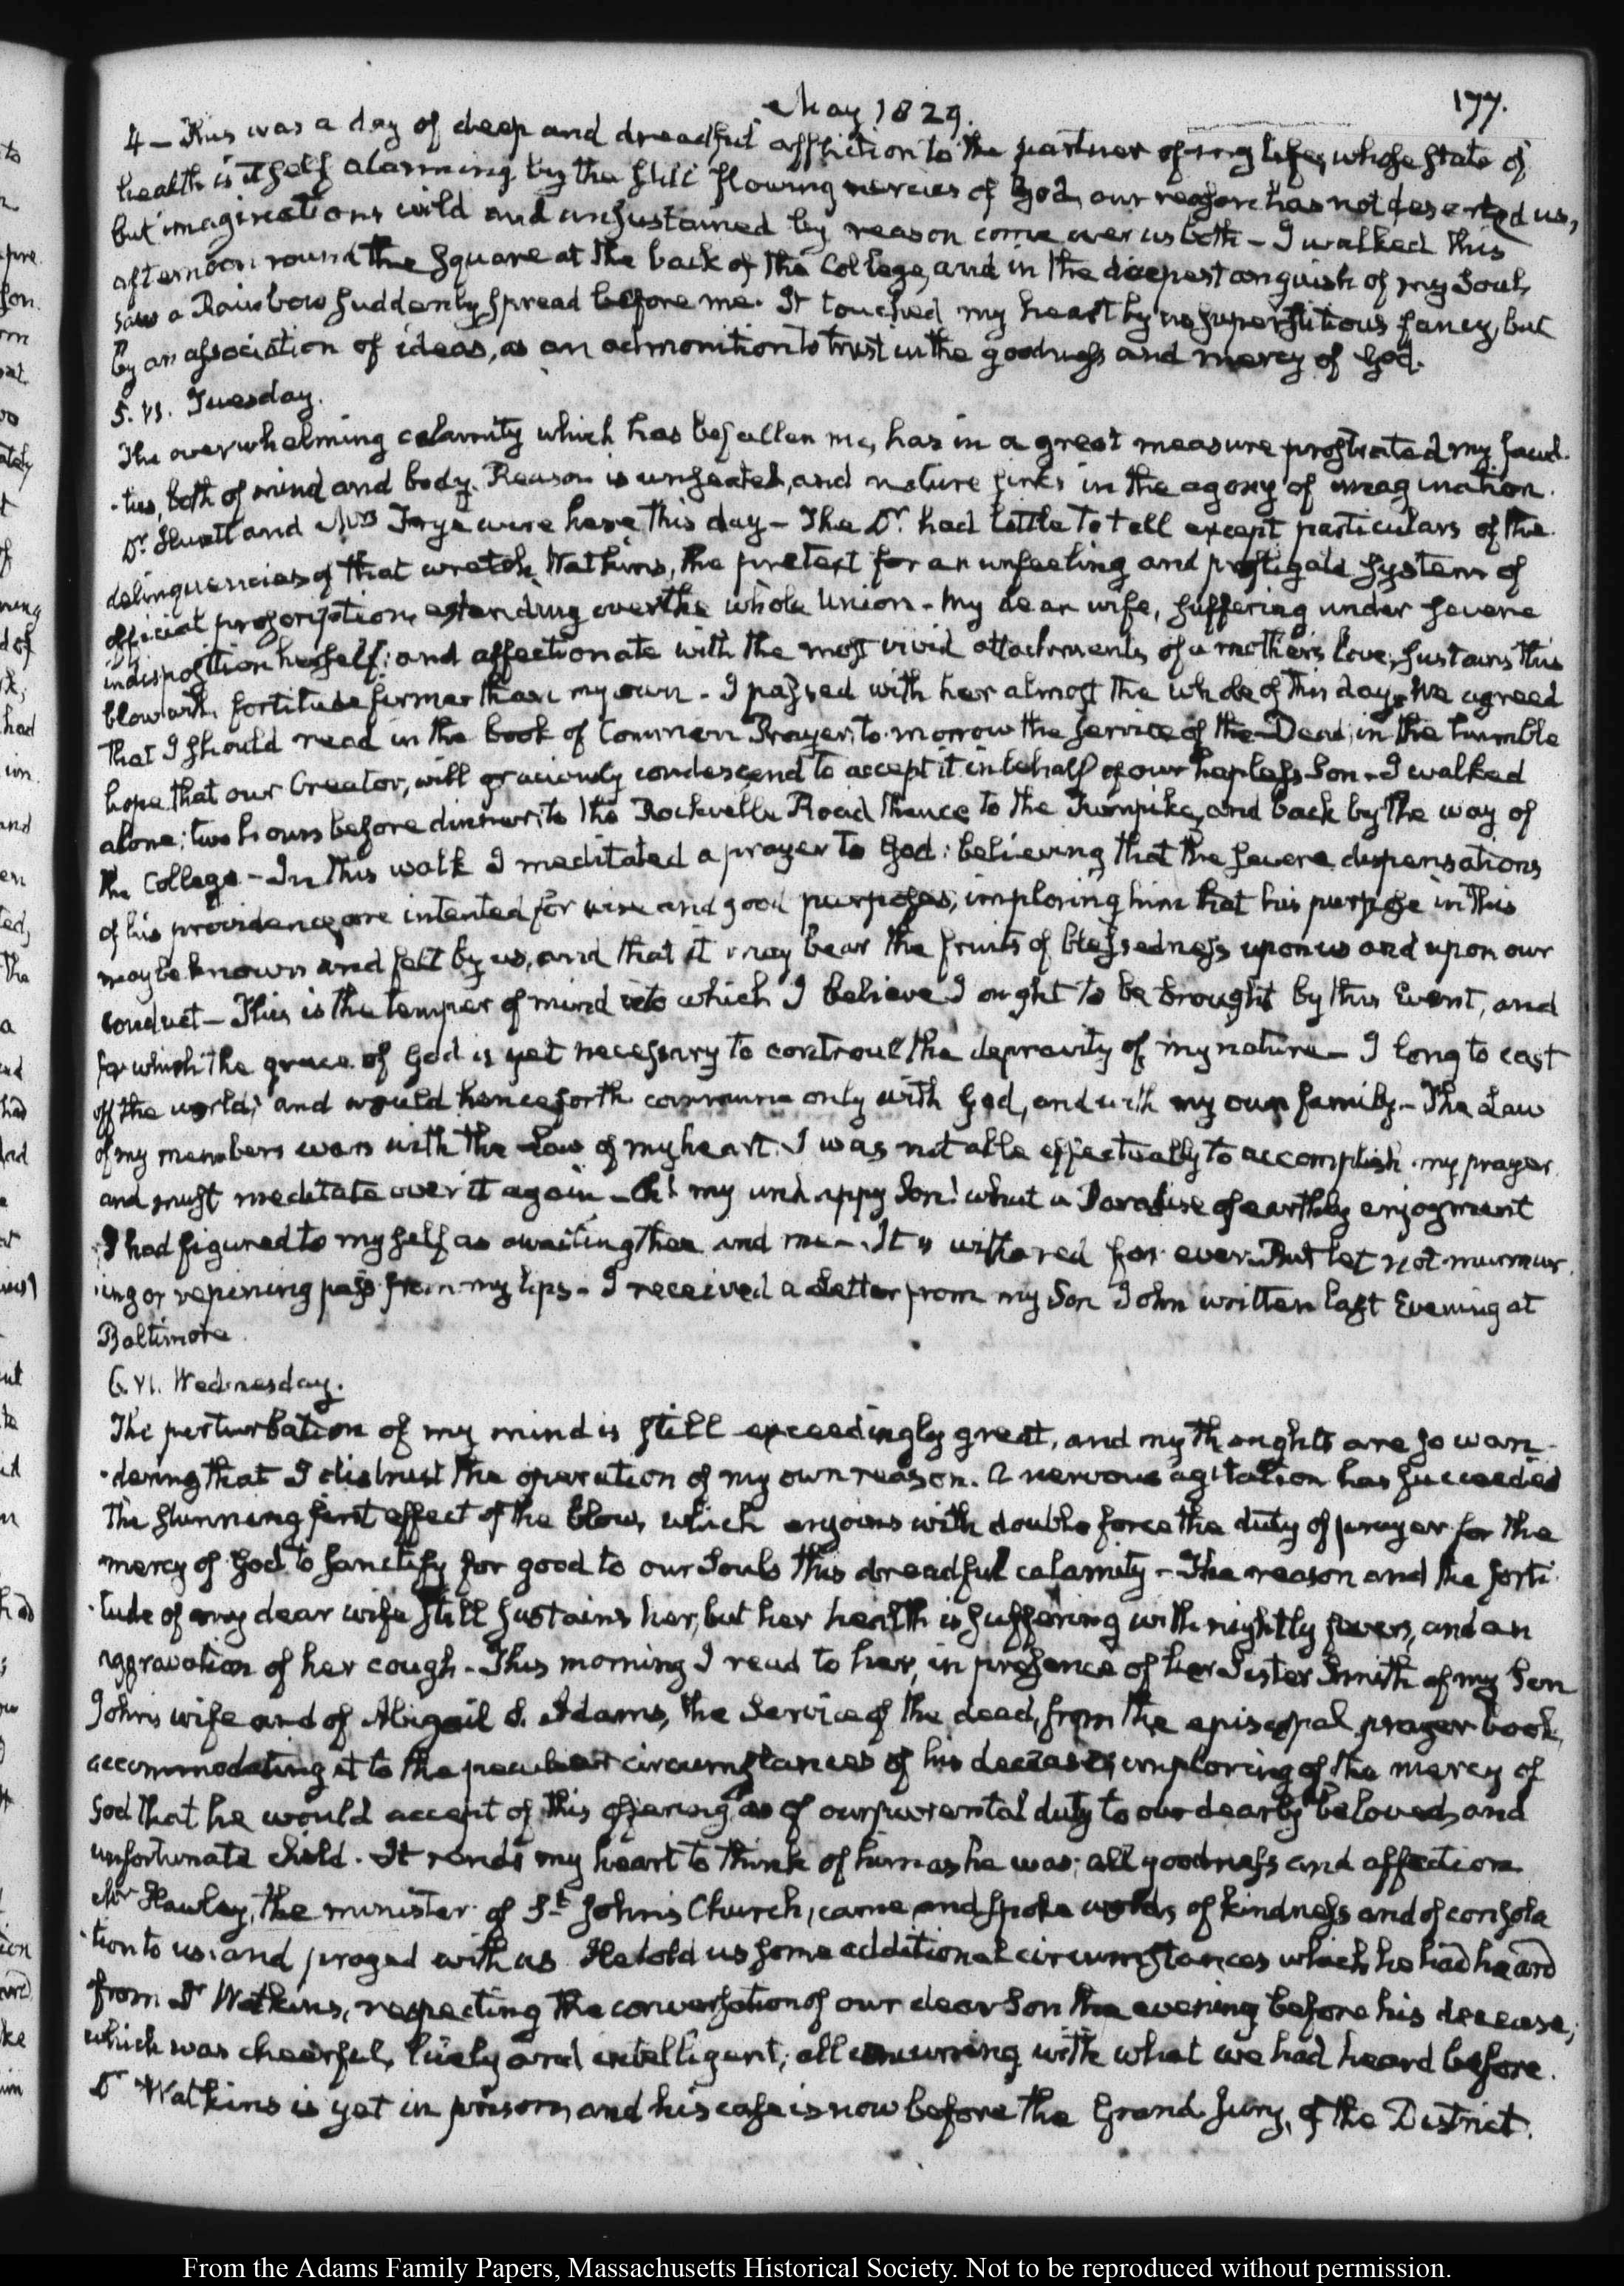 May 1829.
177.
4 — This was a day of deep and dreadful affliction to the partner of my life, whose state of
health is itself alarming by the still flowing mercies of God, our reason has not deserted us,
but imaginations wild and unsustained by reason come over us both – I walked this
afternoon round the Square at the back of the College, and in the deepest anguish of my Soul,
saw a Rainbow suddenly spread before me. It touched my heart by no superstitious fancy, but
by an association of ideas, as an admonition to trust in the goodness and mercy of God.
5. VI. Tuesday.
The overwhelming calamity which has befallen me, has in a great measure prostrated my facul-
-ties, both of mind and body. Reason is unseated, and nature sinks in the agony of imagination.
Dr. Huntt and Mrs Frye were here this day – The Dr. had little to tell except particulars of the
delinquencies of that wretch Watkins, the pretext for an unfeeling and profligate system of
official proscription, extending over the whole Union – My dear wife, suffering under severe
indisposition herself; and affectionate with the most vivid attachments of a mother's love, sustains this
blow with fortitude firmer than my own – I passed with her almost the whole of this day. We agreed
that I should read in the book of Common Prayer, to-morrow the service of the Dead, in the humble
hope that our Creator, will graciously condescend to accept it in behalf of our hapless Son – I walked
alone; two hours before dinner, to the Rockville Road thence to the Turnpike, and back by the way of
the College – In this walk I meditated a prayer to God: believing that the severe dispensations
of his providence, are intented for wise and good purposes, imploring him that his purpose in this
may be known and felt by us, and that it may bear the fruits of blessedness upon us and upon our
conduct – This is the temper of mind into which I believe I ought to be brought by this Event, and
for which the grace of God is yet necessary to controul the depravity of my nature – I long to cast
off the world; and would henceforth commune only with God, and with my own family – The Law
of my members wars with the Law of my heart. I was not able effectually to accomplish my prayer
and must meditate over it again – Oh! my unhappy Son! what a Paradise of earthly enjoyment
I had figured to myself as awaiting thee and me – It is withered for ever. But let not murmur-
-ing or repining pass from my lips – I received a Letter from my Son John written last Evening at
Baltimore.
6. VI. Wednesday.
The perturbation of my mind is still exceedingly great, and my thoughts are so wan-
-dering that I distrust the operation of my own reason. A nervous agitation has succeeded
the stunning first effect of the blow, which enjoins with double force the duty of prayer for the
mercy of God to sanctify for good to our Souls this dreadful calamity – The reason and the forti-
-tude of my dear wife still sustains her, but her health is suffering with nightly fevers, and an
aggravation of her cough – This morning I read to her, in presence of her Sister Smith of my Son
John's wife and of Abigail S. Adams, the Service of the dead, from the episcopal prayer book,
accommodating it to the peculiar circumstances of his decease; imploring of the mercy of
God that he would accept of this offering as of our parental duty to our dearly beloved, and
unfortunate child. It rends my heart to think of him as he was; all goodness and affection.
Mr Hawley, the minister of St. John's Church, came and spoke words of kindness and of consola-
-tion to us: and prayed with us. He told us some additional circumstances which he had heard
from Dr Watkins, respecting the conversation of our dear Son the evening before his decease;
which was cheerful, lively and intelligent; all concurring with what we had heard before.
Dr Watkins is yet in prison, and his case is now before the Grand Jury, of the District.
From the Adams Family Papers, Massachusetts Historical Society. Not to be reproduced without permission.